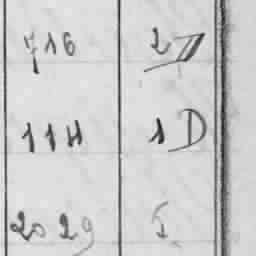 716 2D
114 1D
2029